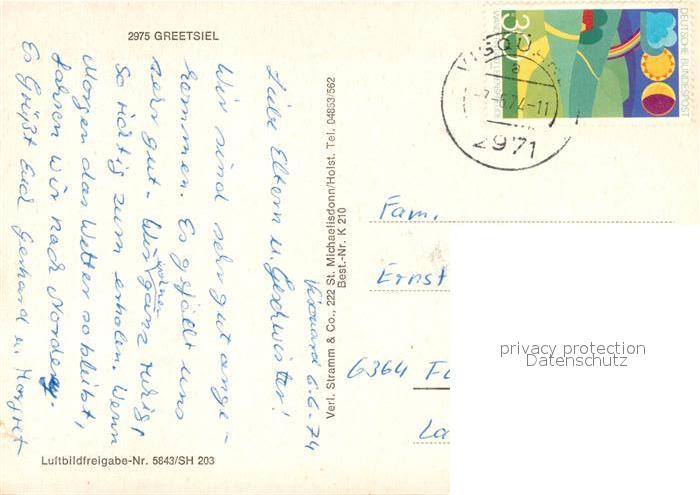 2975 GREETSIEL
Visquard 6.6.74
Liebe Eltern u. Geschwister!
Wir sind sehr gut ange-
kommen. Es gefällt uns
sehr gut. Wir wohnen ganz ruhig,
so richtig zum erholen. Wenn
Morgen das Wetter so bleibt,
fahren wir nach Norderney.
Es Grüßt Euch Gerhard u. Margret
Luftbildfreigabe-Nr. 5843/SH 203
Verl. Stramm & Co., 222 St. Michaelisdonn/Holst. Tel. 04853/562
Best.-Nr. K 210
30
DEUTSCHE BUNDESPOST
2971
Fam.
Ernst
6364
La
privacy protection
Datenschutz